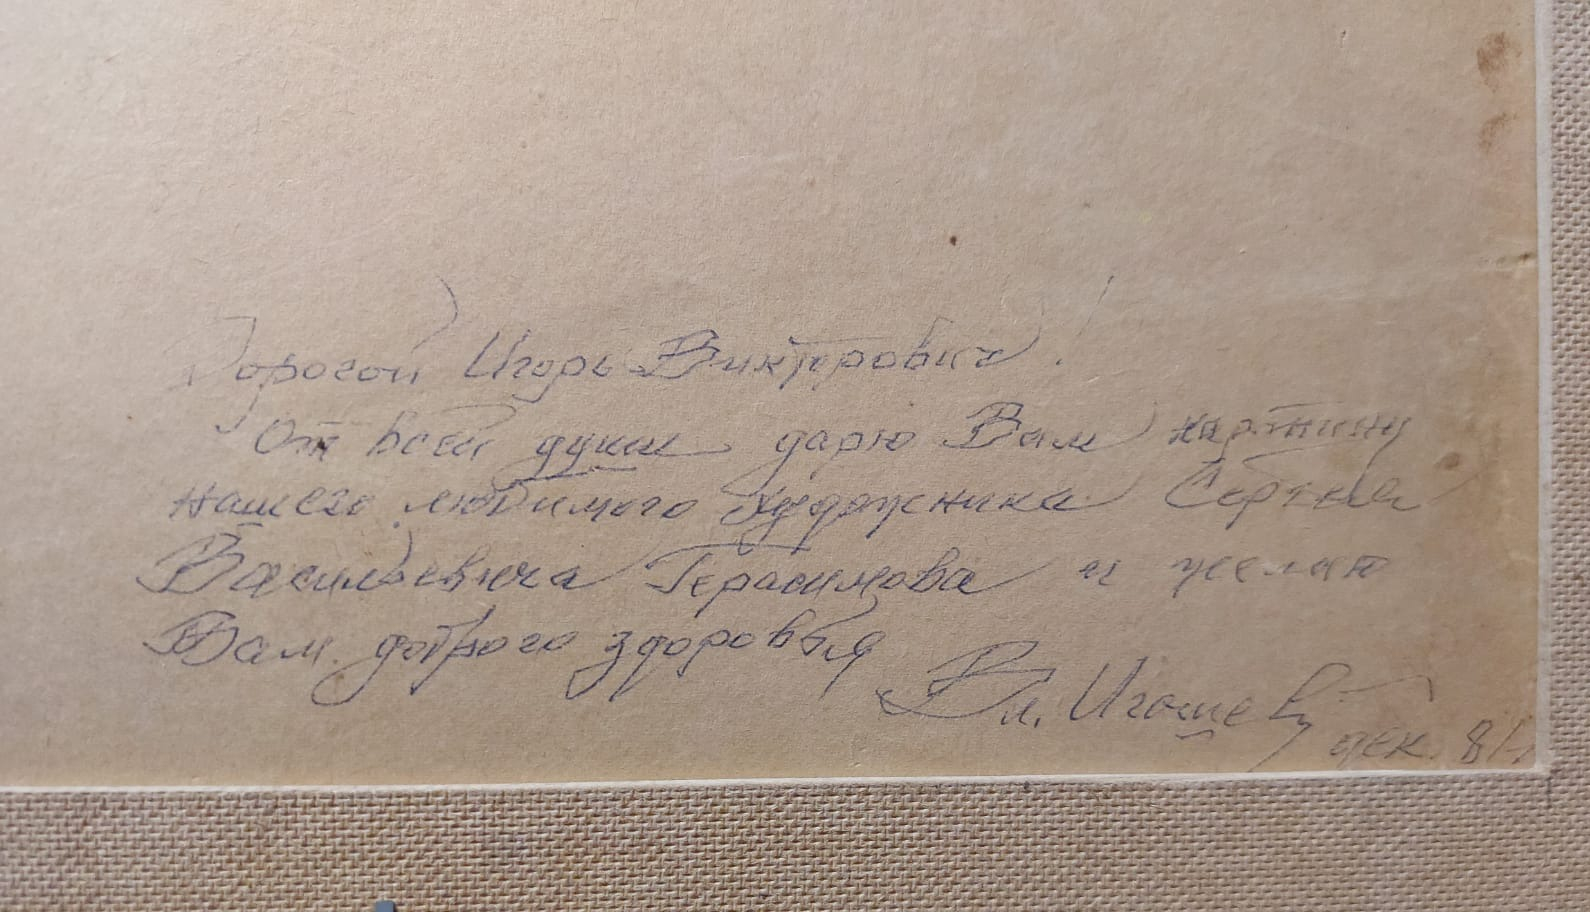 Дорогой Игорь Викторович!
От всей души дарю Вам картину
нашего любимого художника Сергея
Васильевича Герасимова и желаю
Вам доброго здоровья
Вл. Игошев
дек. 84